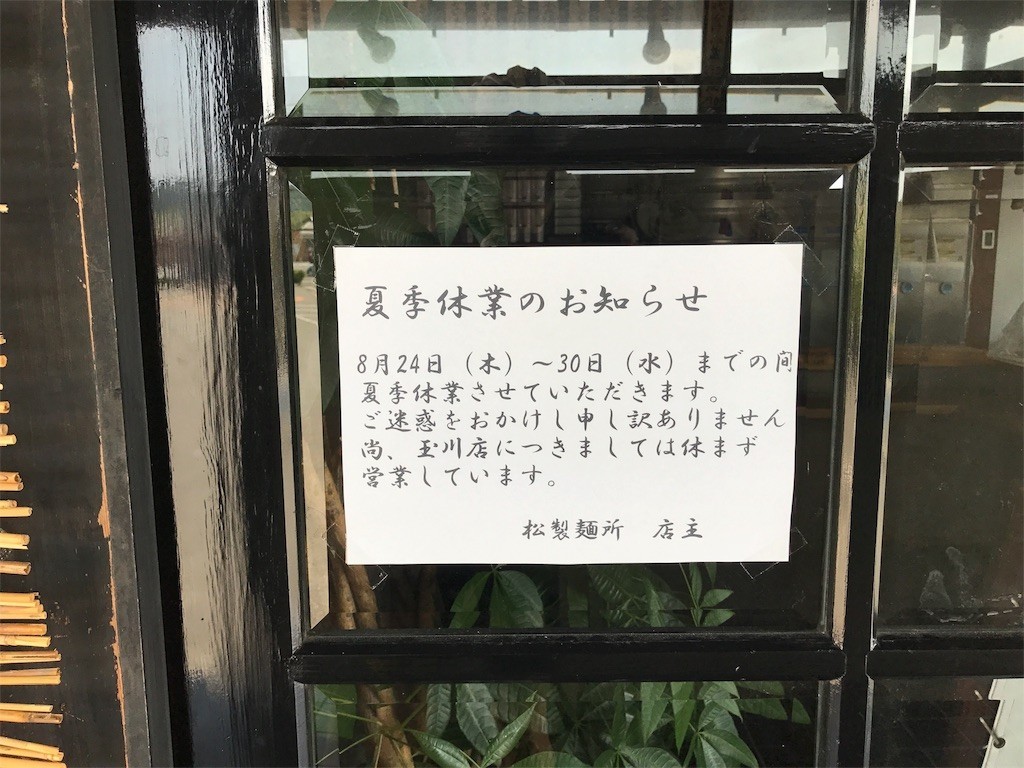 夏季休業のお知らせ
8月24日（木）～30日（水）までの間
夏季休業させていただきます。
ご迷惑をおかけし申し訳ありません
尚、玉川店につきましては休まず
営業しています。
松製麺所　店主